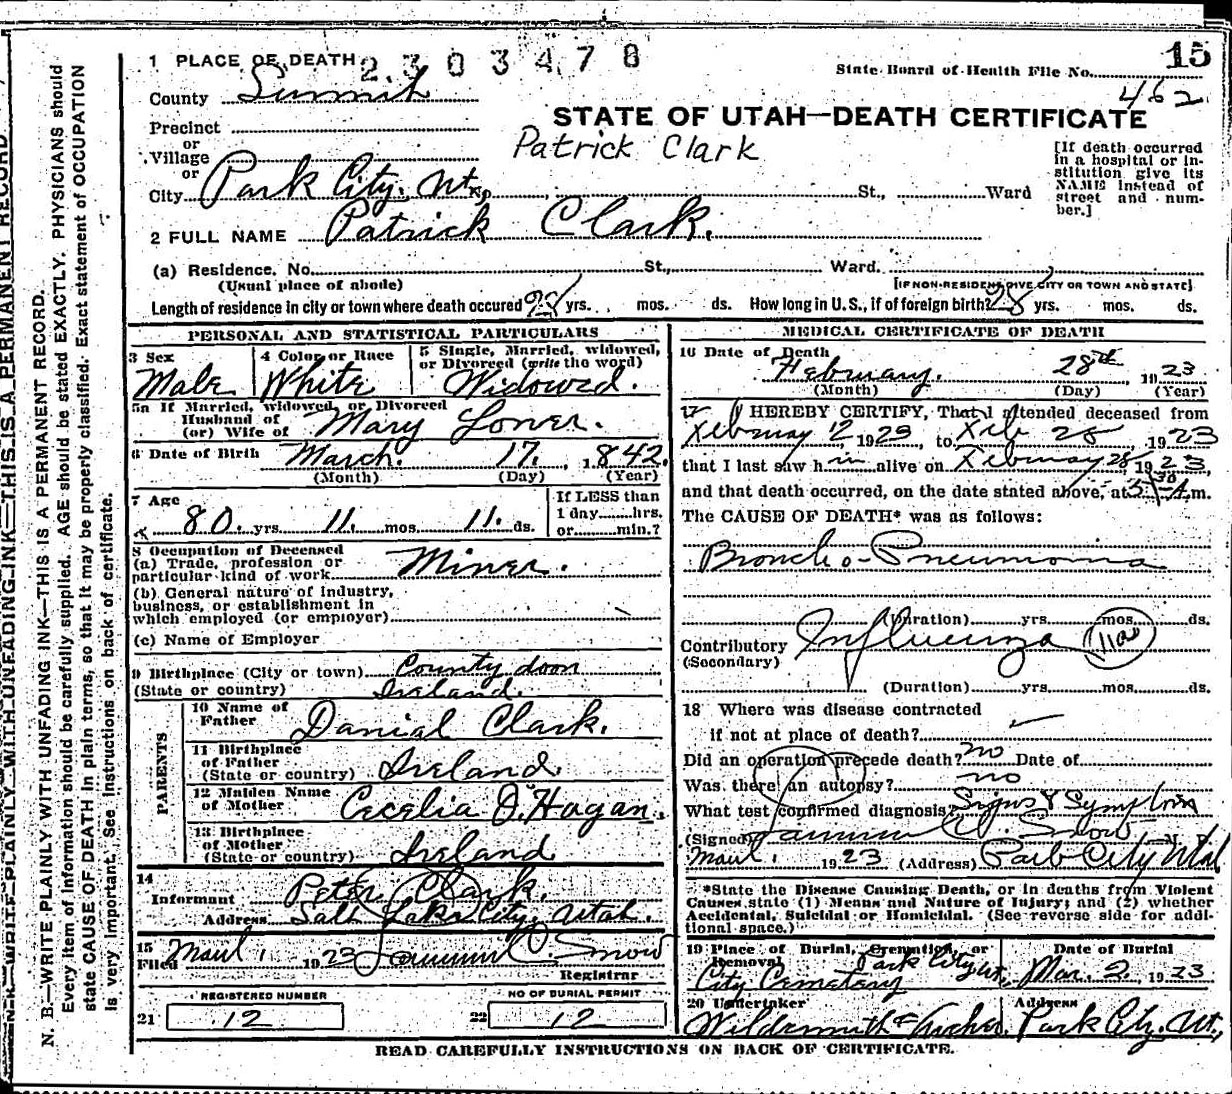 15
1 PLACE OF DEATH 2303478
State Board of Health File No. 462
County Summit
STATE OF UTAH—DEATH CERTIFICATE
Precinct
or
Village
or
Patrick Clark
[If death occurred in a hospital or institution give its NAME instead of street and number.]
City Park City, Ut. St., Ward
2 FULL NAME Patrick Clark.
(a) Residence. No. St., Ward.
(Usual place of abode) [IF NON-RESIDENT GIVE CITY OR TOWN AND STATE]
Length of residence in city or town where death occured yrs. mos. ds. How long in U.S., if of foreign birth? yrs. mos. ds.
PERSONAL AND STATISTICAL PARTICULARS
3 Sex
Male
4 Color or Race
White
5 Single, Married, widowed,
or Divorced (write the word)
Widowed.
5a If Married, widowed, or Divorced
Husband of
(or) Wife of Mary Loner.
6 Date of Birth March. 17. 1842.
(Month) (Day) (Year)
7 Age
80 yrs. 11 mos. 11 ds.
If LESS than
1 day......hrs.
or......min.?
8 Occupation of Deceased
(a) Trade, profession or
particular kind of work Miner.
(b) General nature of industry,
business, or establishment in
which employed (or employer)
(c) Name of Employer
9 Birthplace (City or town) County doon
(State or country) Ireland.
PARENTS
10 Name of
Father Danial Clark.
11 Birthplace
of Father
(State or country) Ireland
12 Maiden Name
of Mother Cecelia O'Hagan.
13 Birthplace
of Mother
(State or country) Ireland
14
Informant Peter Clark.
Address Salt Lake City, Utah.
15
Filed 1923 Snow
Registrar
REGISTERED NUMBER
21 12
NO OF BURIAL PERMIT
22 12
MEDICAL CERTIFICATE OF DEATH
16 Date of Death
February. 28th 1923
(Month) (Day) (Year)
17 I HEREBY CERTIFY, That I attended deceased from
February 12 1923, to Feb 28 1923
that I last saw him alive on February 28 1923,
and that death occurred, on the date stated above, at A.m.
The CAUSE OF DEATH* was as follows:
Broncho-Pneumonia
(Duration) yrs. mos. ds.
Contributory Influenza 11a
(Secondary)
(Duration) yrs. mos. ds.
18 Where was disease contracted
if not at place of death?
Did an operation precede death? no Date of
Was there an autopsy? no
What test confirmed diagnosis? Signs & Symptoms
(Signed) Snow
1923 (Address) Park City Utah
*State the Disease Causing Death, or in deaths from Violent
Causes, state (1) Means and Nature of Injury; and (2) whether
Accidental, Suicidal or Homicidal. (See reverse side for addi-
tional space.)
19 Place of Burial, Cremation, or
Removal Park City Ut.
City Cemetery
Date of Burial
Mar. 2. 1923
20 Undertaker
Address
Park City. Ut.
READ CAREFULLY INSTRUCTIONS ON BACK OF CERTIFICATE.
N. B.—WRITE PLAINLY WITH UNFADING INK—THIS IS A PERMANENT RECORD.
Every item of information should be carefully supplied. AGE should be stated EXACTLY. PHYSICIANS should
state CAUSE OF DEATH in plain terms, so that it may be properly classified. Exact statement of OCCUPATION
is very important. See instructions on back of certificate.